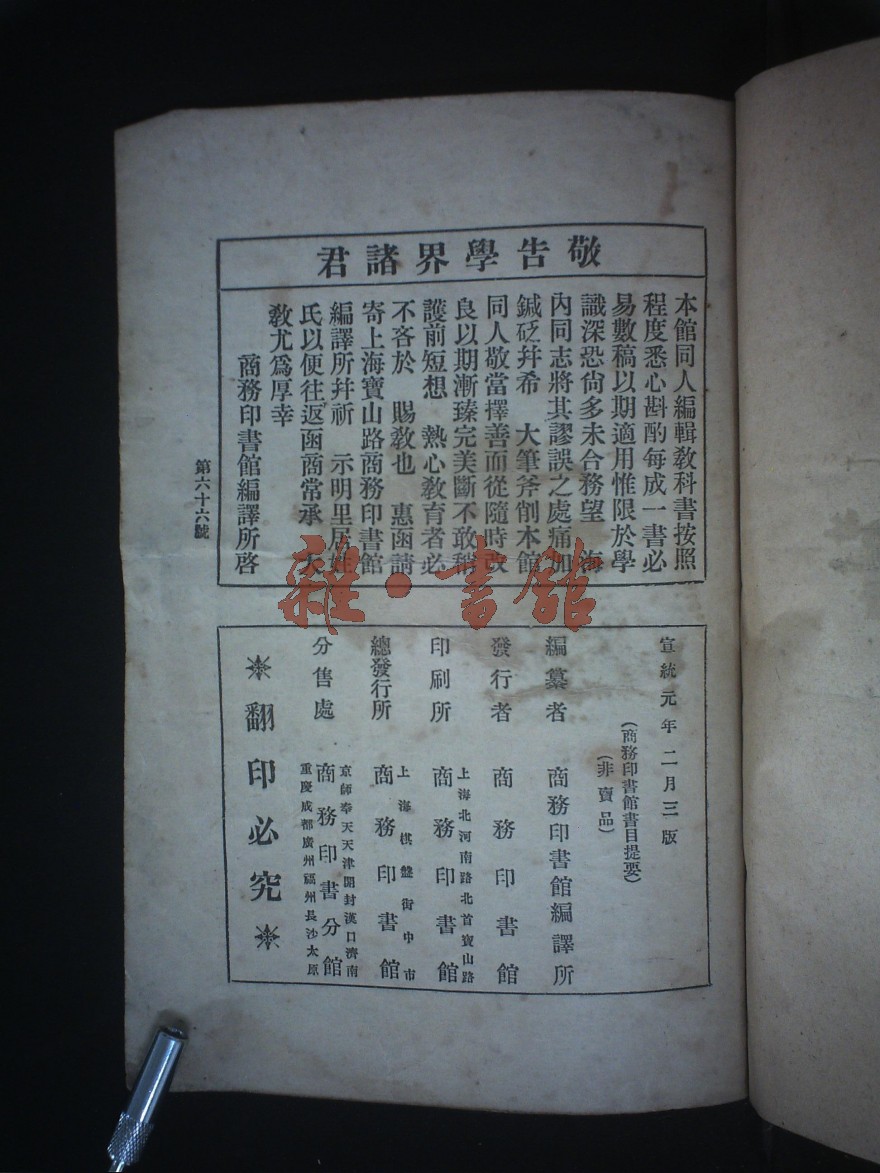 敬告學界諸君
本館同人編輯敎科書按照
程度悉心斟酌每成一書必
易數稿以期適用惟限於學
識深恐尙多未合務望　海
內同志將其謬誤之處痛加
鍼砭幷希　大筆斧削本館
同人敬當擇善而從隨時改
良以期漸臻完美斷不敢稍
護前短想　熱心敎育者必
不吝於　賜敎也　惠函請
寄上海寶山路商務印書館
編譯所幷祈　示明里居姓
氏以便往返函商常承　大
敎尤爲厚幸
商務印書館編譯所啓
第六十六號
雜·書館
宣統元年二月三版
(商務印書館書目提要)
(非賣品)
編纂者　商務印書館編譯所
發行者　商務印書館
印刷所　上海北河南路北首寶山路
商務印書館
總發行所　上海棋盤街中市
商務印書館
分售處　京師奉天天津開封漢口濟南
商務印書分館
重慶成都廣州福州長沙太原
翻印必究